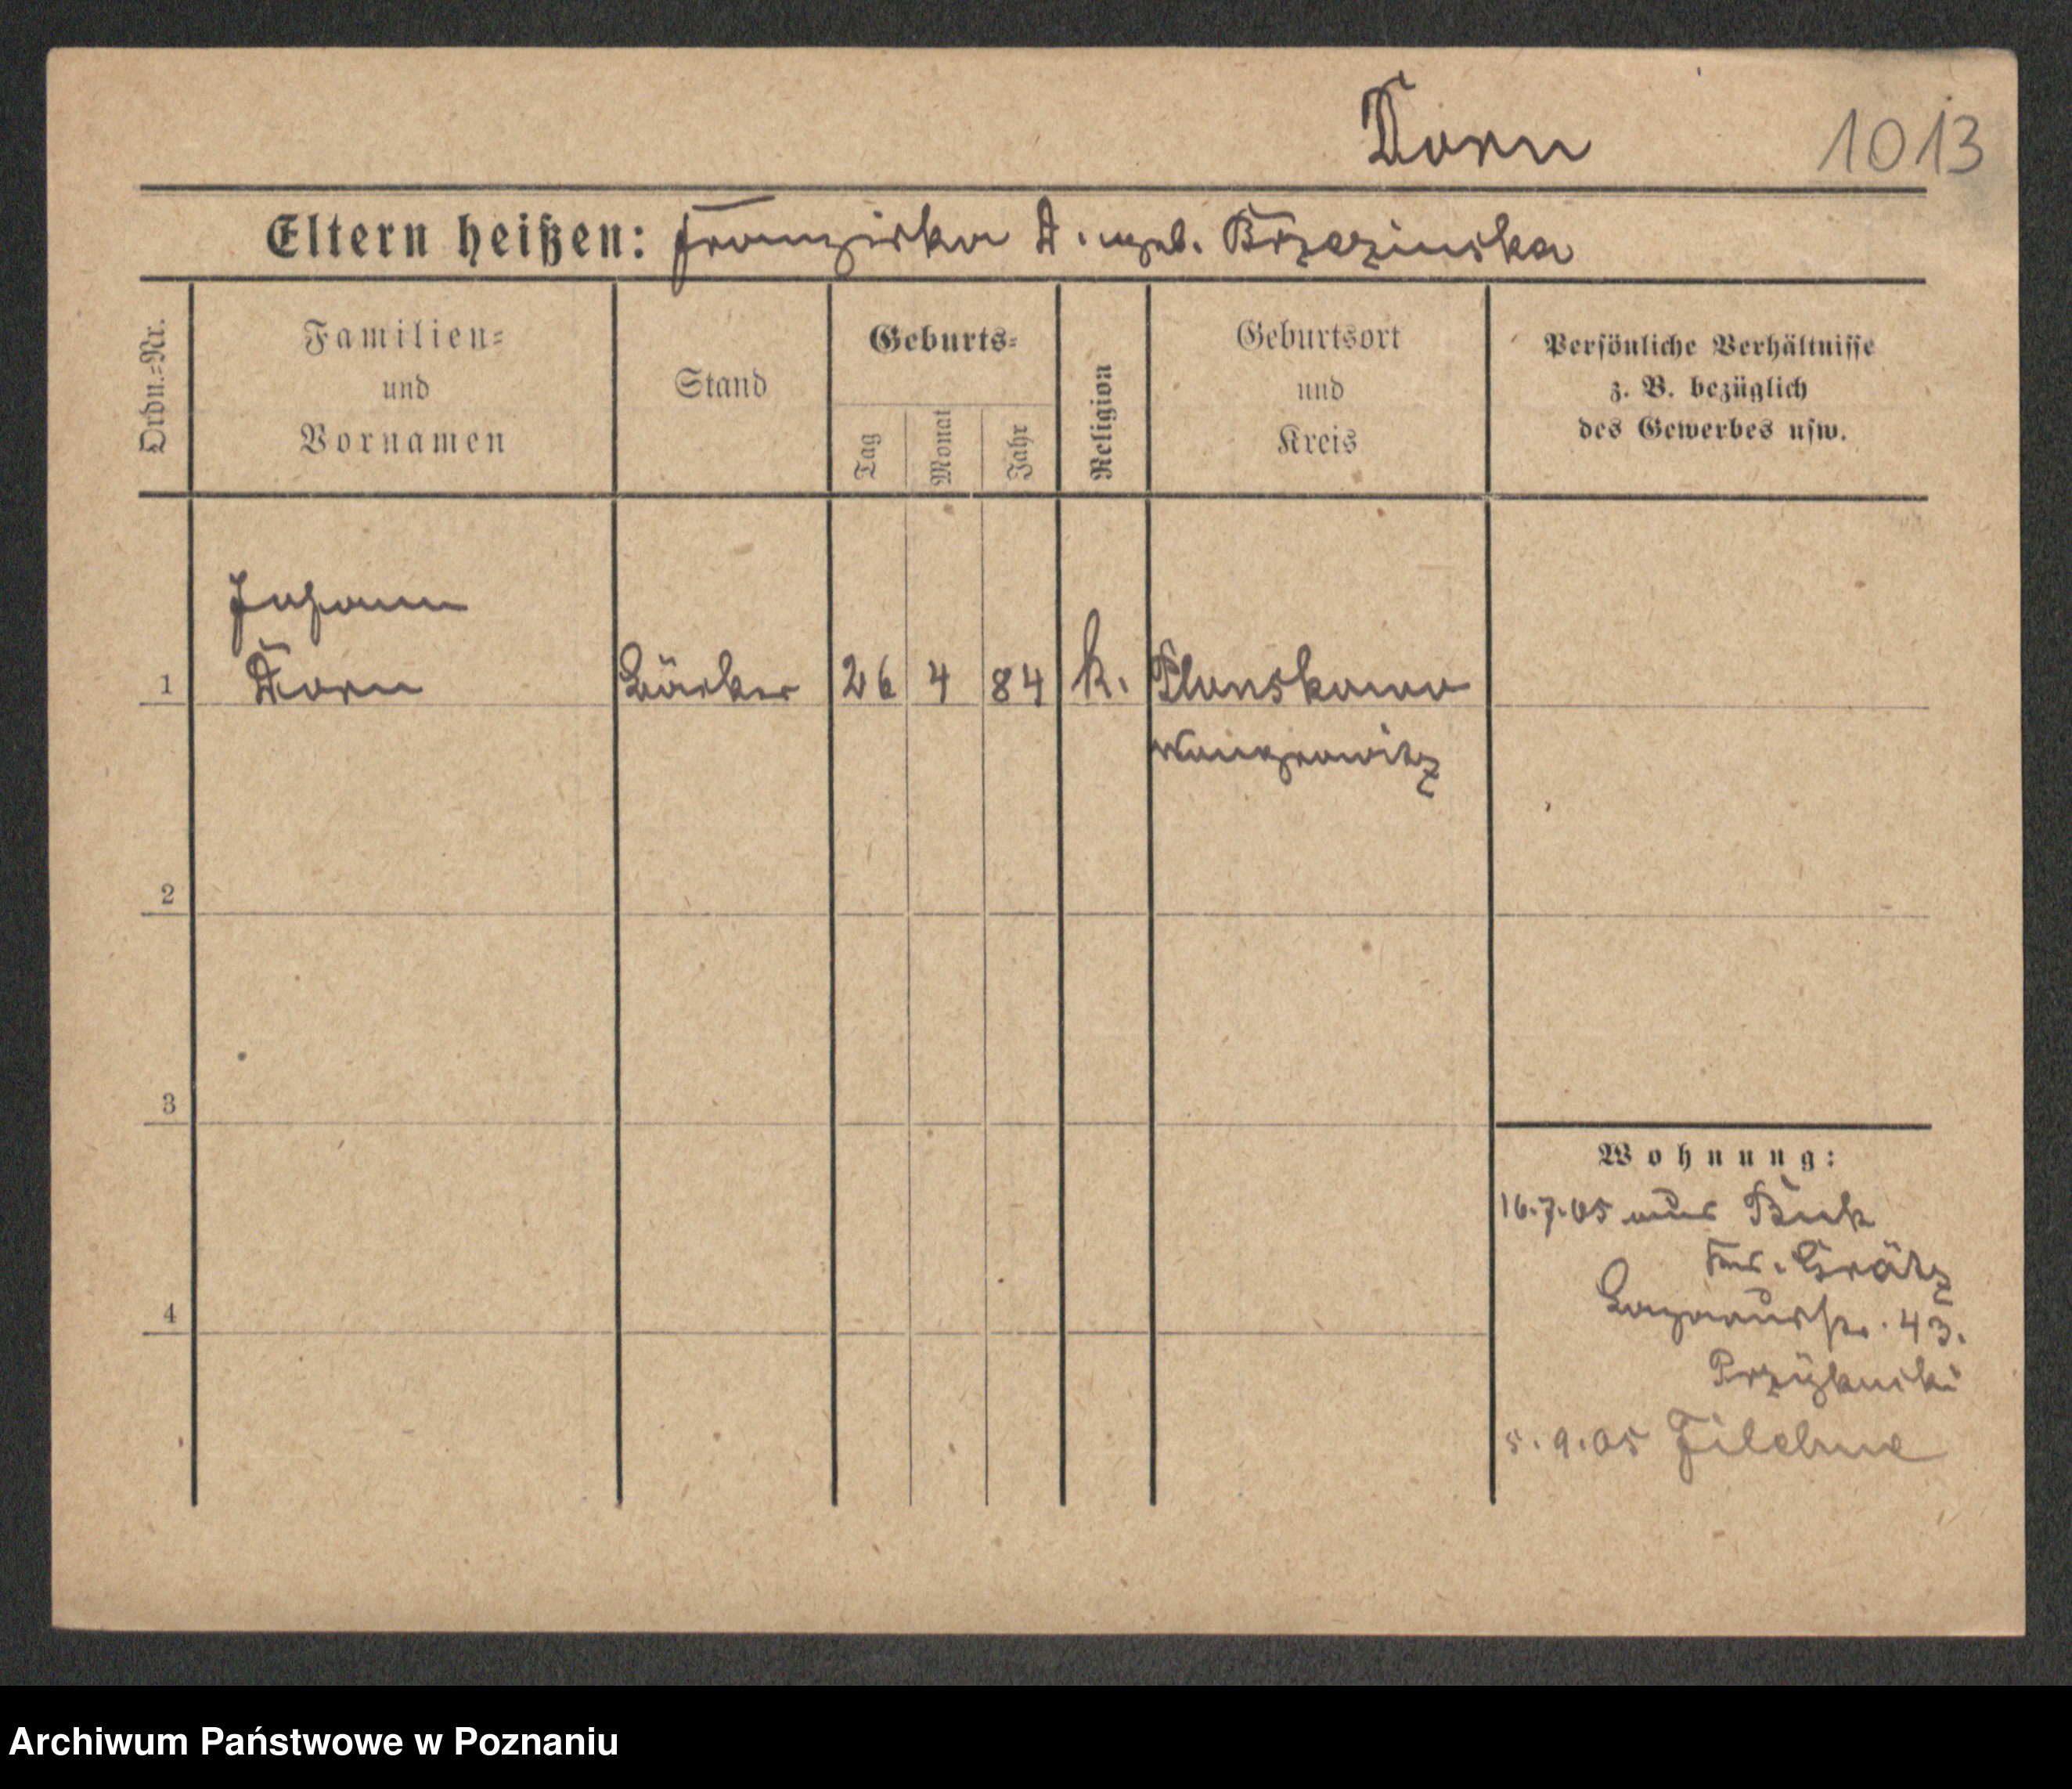 Dorn
1013
Eltern heißen: Franziska D. geb. Brzezinska
Ordn.-Nr.
Familien-
und
Vornamen
Stand
Geburts-
Tag
Monat
Jahr
Religion
Geburtsort
und
Kreis
Persönliche Verhältnisse
z. B. bezüglich
des Gewerbes usw.
Johann
1 Dorn Bäcker 26 4 84 k. Plonskowo
Wongrowitz
2
3
4
Wohnung:
16.7.05 aus Buk
Krs. Grätz
43.
5.9.05 Filehne
Archiwum Państwowe w Poznaniu